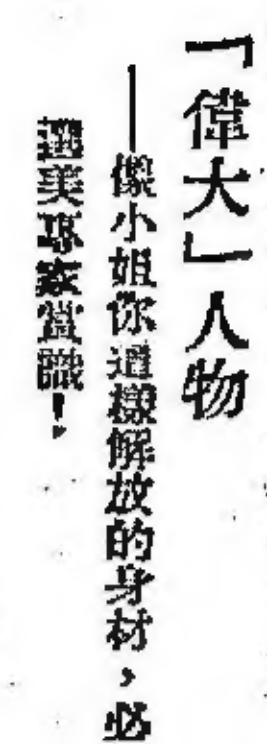 「偉大」人物
——像小姐你這樣解放的身材，必
選美專家賞識！